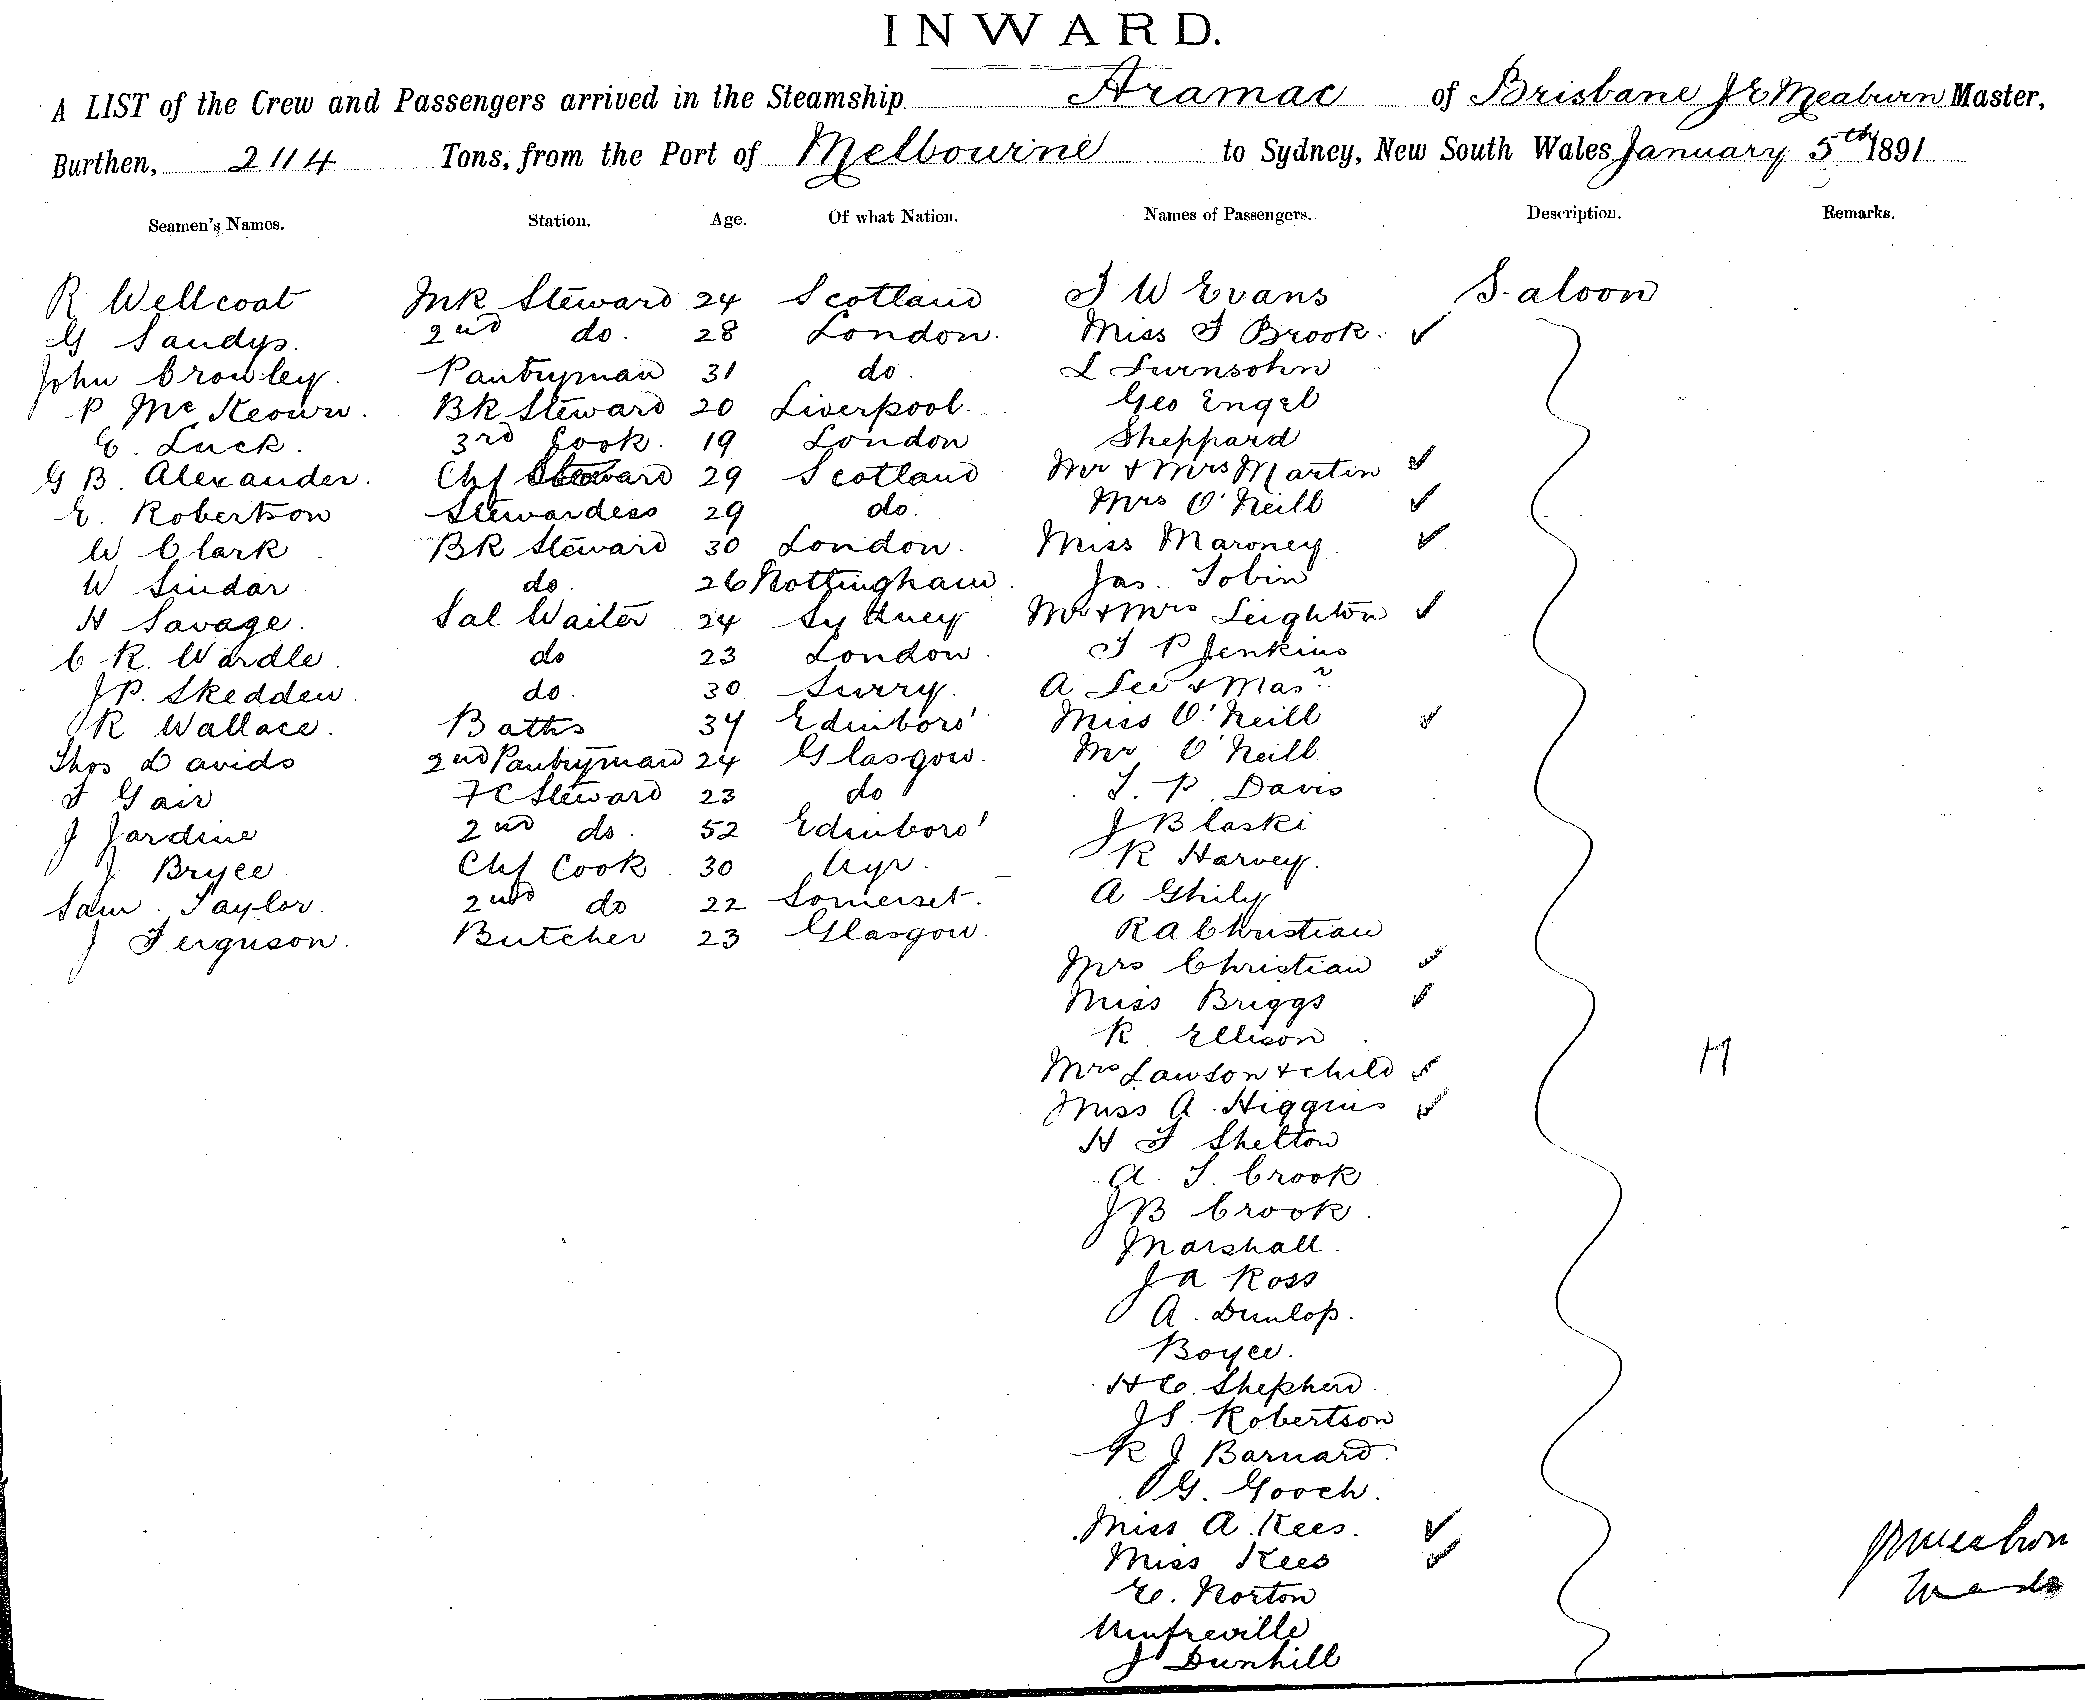 INWARD.
A LIST of the Crew and Passengers arrived in the Steamship Aramac of Brisbane J E Meaburn Master,
Burthen, 2114 Tons, from the Port of Melbourne to Sydney, New South Wales January 5th 1891
Seamen's Names. Station. Age. Of what Nation. Names of Passengers. Description. Remarks.
R Wellcoat Mk Steward 24 Scotland J W Evans Saloon
G Sandys. 2nd do. 28 London. Miss J Brook. ✓
John Crowley. Pantryman 31 do L Surnsohn
P McKeown. BR Steward 20 Liverpool. Geo Engel
E. Luck. 3rd Cook. 19 London Sheppard
G B. Alexander. Chf Steward 29 Scotland Mr & Mrs Martin ✓
E. Robertson Stewardess 29 do. Mrs O'Neill ✓
W Clark BR Steward 30 London. Miss Maroney. ✓
W Sindar do. 26 Nottingham. Jas. Tobin
H Savage. Sal Waiter 24 Sydney Mr & Mrs Leighton ✓
C R. Wardle. do 23 London. J P Jenkins
J P. Skedden. do. 30 Surry. A Lee & Masr
R Wallace. Baths 34 Edinboro' Miss O'Neill ✓
Thos Davids 2nd Pantryman 24 Glasgow. Mr O'Neill
J Gair FC Steward 23 do T. P. Davis
J Jardine 2nd do. 52 Edinboro' J Blaski
J Bryce Chf Cook 30 Ayr. R Harvey.
Sam. Taylor. 2nd do 22 Somerset. A Ghily
J Ferguson. Butcher 23 Glasgow. R A Christian
Mrs Christian ✓
Miss Briggs ✓
R Ellison
Mrs Lawson & child ✓
Miss A. Higgins ✓
H J Shelton
A. J. Crook
J B Crook.
Marshall.
J A Ross
A. Dunlop.
Boyce.
H C. Shepherd.
J S. Robertson
R J Barnard.
G. Gooch.
Miss A. Kees. ✓
Miss Kees ✓
E. Norton
Umfreville
J Dunhill